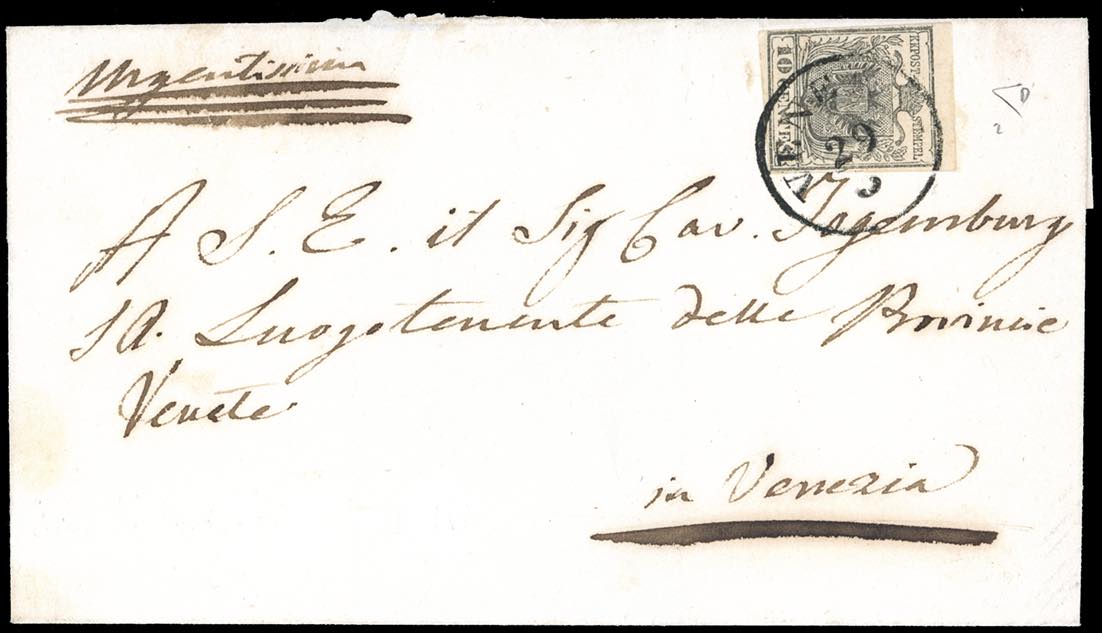 Urgentissima
KKPOST-STEMPEL
10 CENTES
VENEZIA
29
A S. E. il Sig Cav. Togenburg
I R. Luogotenente delle Provincie
Venete
in Venezia